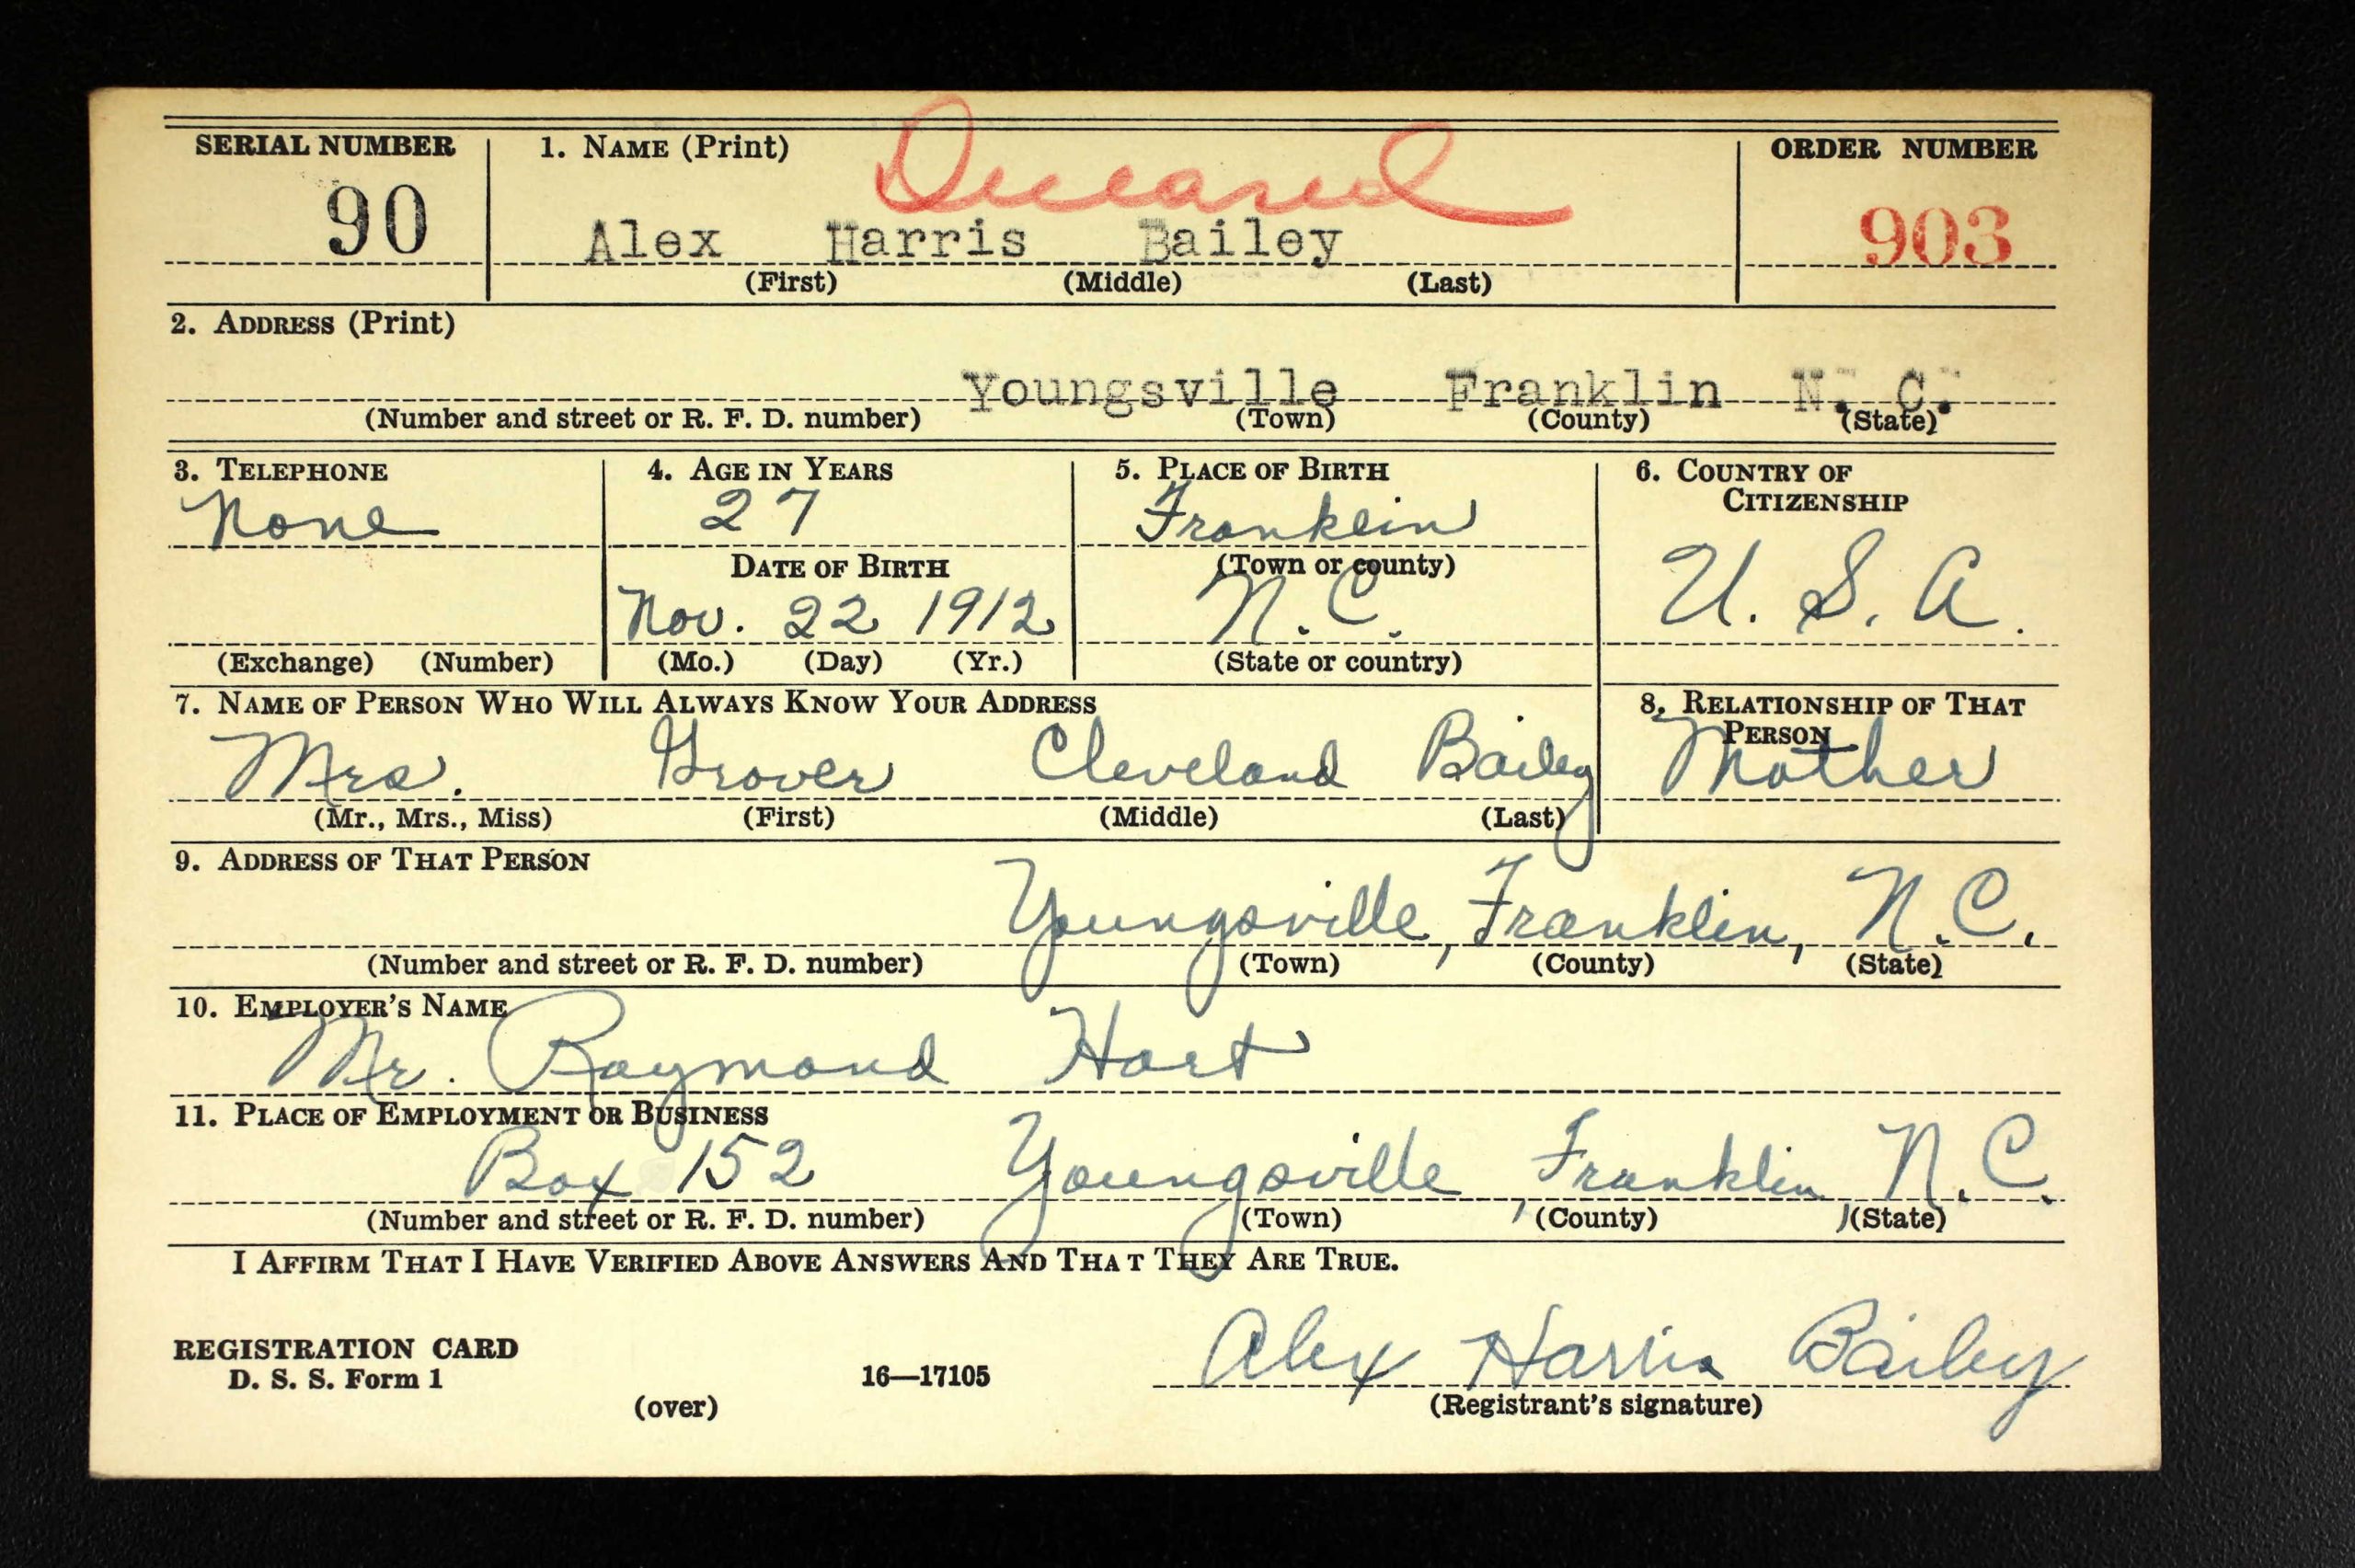 Deceased
SERIAL NUMBER 1. NAME (Print) ORDER NUMBER
90 Alex Harris Bailey 903
(First) (Middle) (Last)
2. ADDRESS (Print)
Youngsville Franklin N. C.
(Number and street or R. F. D. number) (Town) (County) (State)
3. TELEPHONE 4. AGE IN YEARS 5. PLACE OF BIRTH 6. COUNTRY OF
CITIZENSHIP
None 27 Franklin
DATE OF BIRTH (Town or county)
Nov. 22 1912 N.C. U. S. A.
(Exchange) (Number) (Mo.) (Day) (Yr.) (State or country)
7. NAME OF PERSON WHO WILL ALWAYS KNOW YOUR ADDRESS 8. RELATIONSHIP OF THAT
PERSON
Mrs. Grover Cleveland Bailey Mother
(Mr., Mrs., Miss) (First) (Middle) (Last)
9. ADDRESS OF THAT PERSON
Youngsville, Franklin, N.C.
(Number and street or R. F. D. number) (Town) (County) (State)
10. EMPLOYER'S NAME
Mr. Raymond Hart
11. PLACE OF EMPLOYMENT OR BUSINESS
Box 152 Youngsville, Franklin, N.C.
(Number and street or R. F. D. number) (Town) (County) (State)
I AFFIRM THAT I HAVE VERIFIED ABOVE ANSWERS AND THAT THEY ARE TRUE.
Alex Harris Bailey
REGISTRATION CARD
D. S. S. Form 1 16—17105
(over) (Registrant's signature)